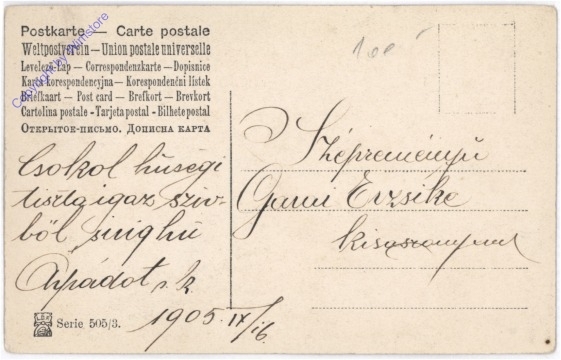 Postkarte — Carte postale
Weltpostverein — Union postale universelle
Levelező-Lap — Correspondenzkarte — Dopisnice
Karta korespondencyjna — Korespondenční lístek
Briefkaart — Post card — Brefkort — Brevkort
Cartolina postale - Tarjeta postal - Bilhete postal
Открытое-письмо. Дописна карта
Copyright by filmstore
100
Csokol hűségi
tiszta igaz szív-
ből
Árpádot s.k.
1905 IX/16.
Szépreményű
Erzsike
kisasszonynak
Serie 505/3.